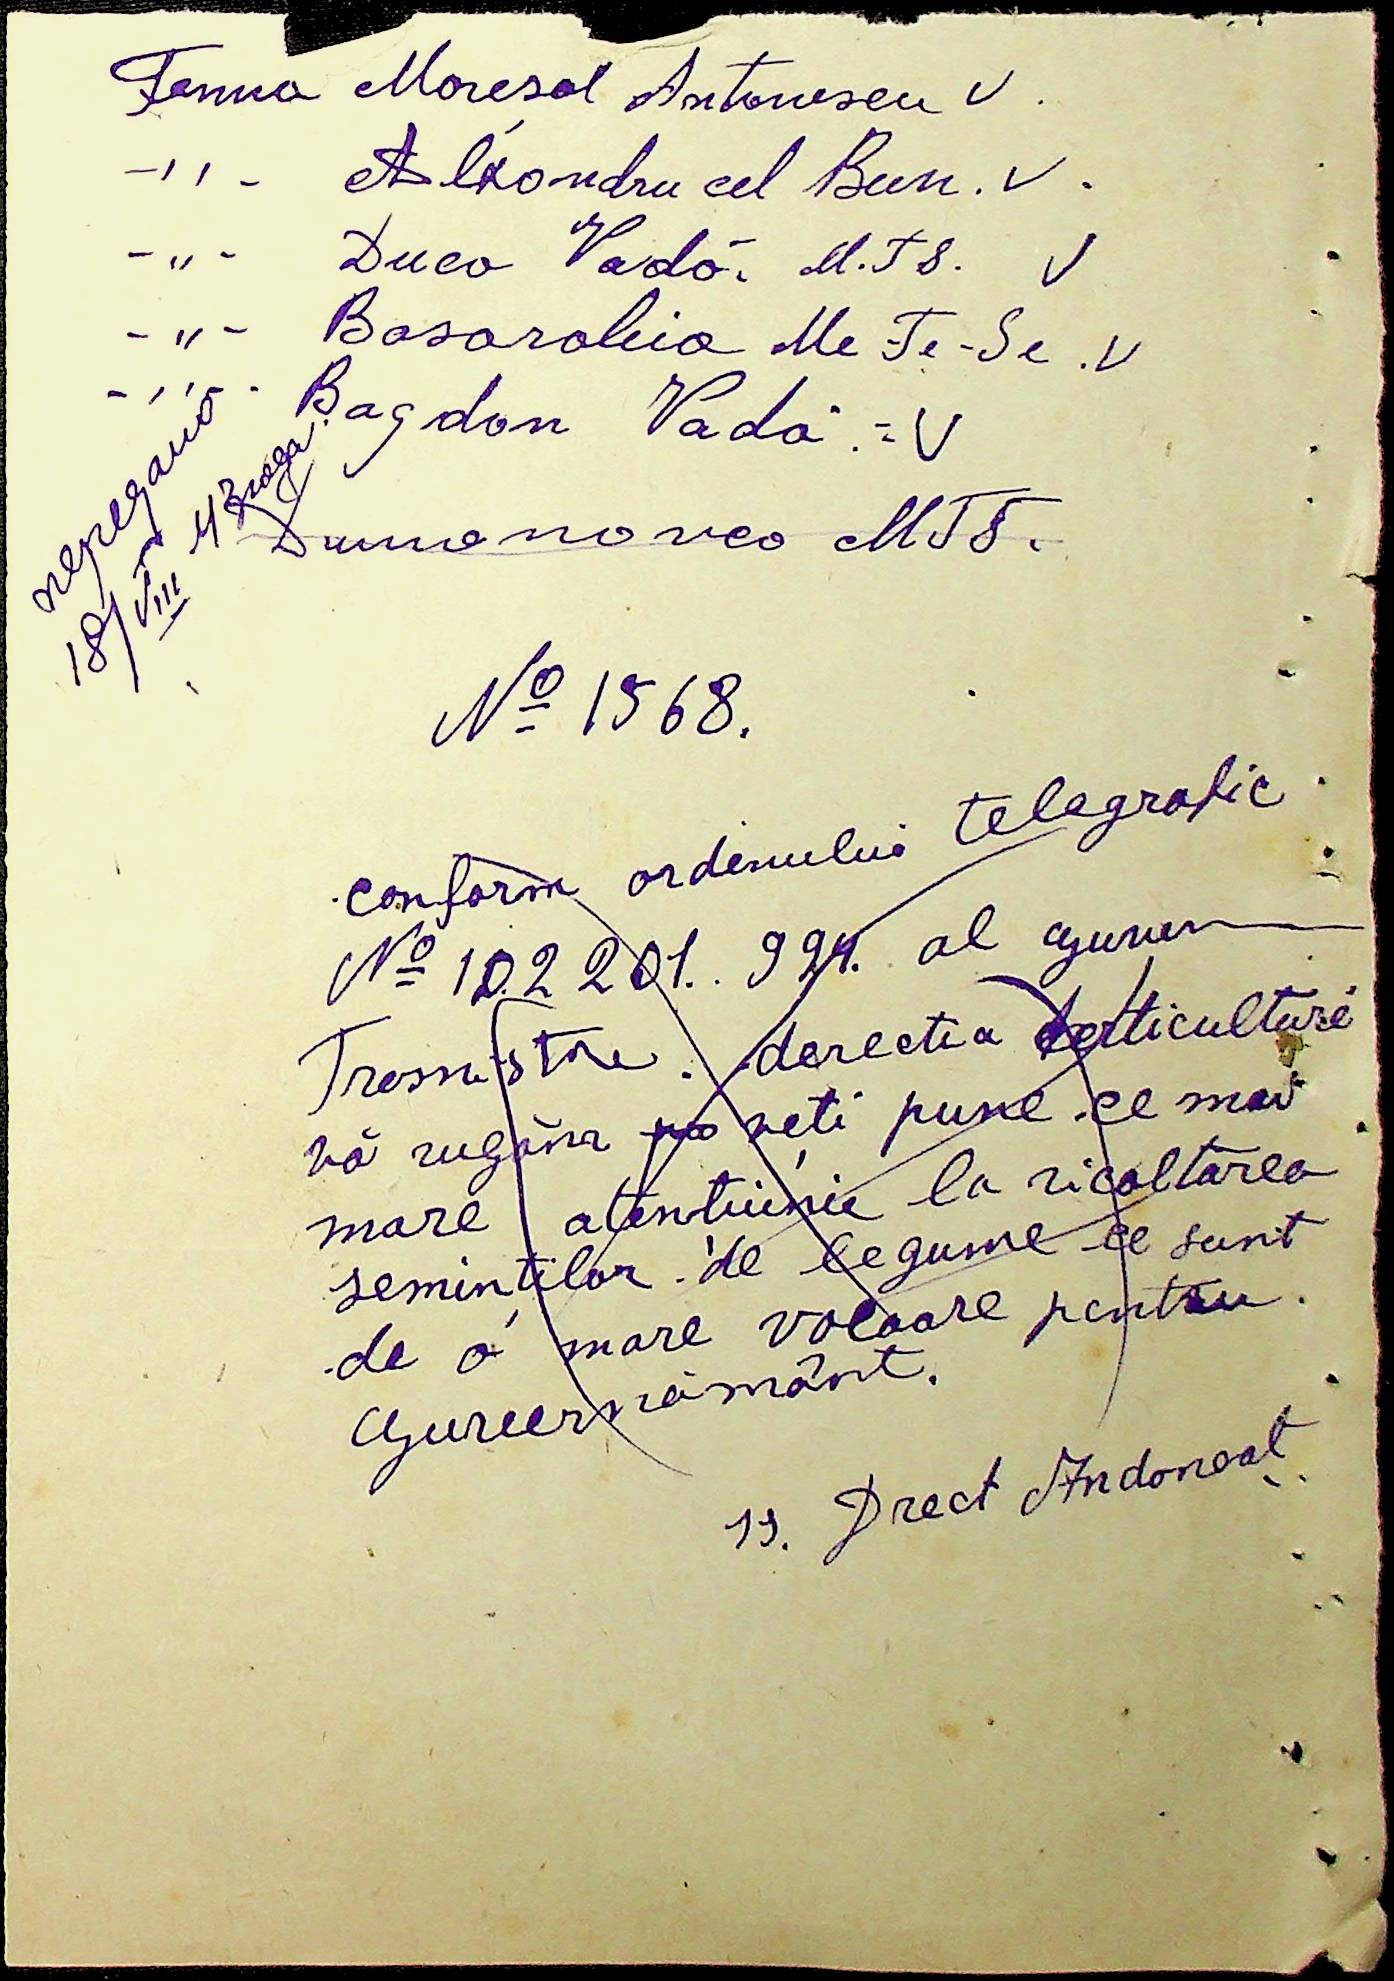 Ferma Moresal Antonescu V.
-,,- Alexandru cel Bun. V.
-,,- Duca Vadă. M.T.S. V
-,,- Basarabia Me-Te-Se. V
-,,- Bagdan Vadă. = V
передано
18/VIII 44 года.
Dumanovca MTS.
№ 1568.
conform ordinului telegrafic
№ 102201. 994. al guvern
Transnistrie. derectia horticulturi
vă rugăm veti pune ce mai
mare atentiunie la ricoltarea
semintilor de legume ce sunt
de o mare valoare pentru
guvernământ.
ss. Drect Andoneat